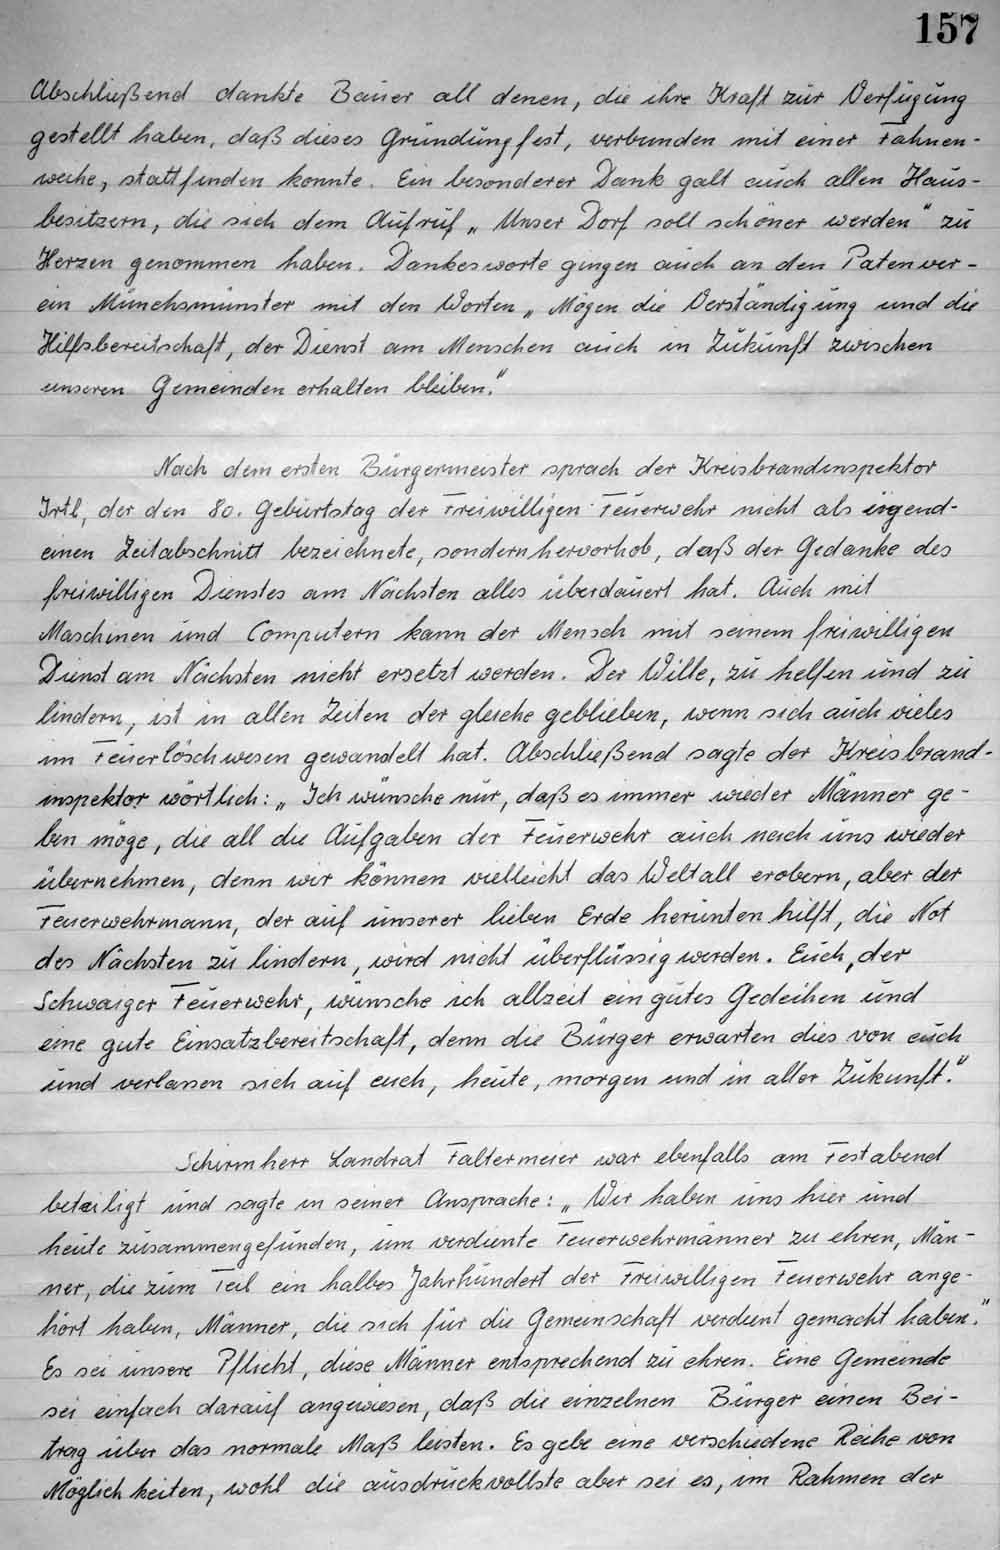 157
Abschließend dankte Bauer all denen, die ihre Kraft zur Verfügung
gestellt haben, daß dieses Gründungfest, verbunden mit einer Fahnen-
weihe, stattfinden konnte. Ein besonderer Dank galt auch allen Haus-
besitzern, die sich dem Aufruf „Unser Dorf soll schöner werden" zu
Herzen genommen haben. Dankesworte gingen auch an den Patenver-
ein Münchsmünster mit den Worten „Mögen die Verständigung und die
Hilfsbereitschaft, der Dienst am Menschen auch in Zukunft zwischen
unseren Gemeinden erhalten bleiben."
Nach dem ersten Bürgermeister sprach der Kreisbrandinspektor
Irtl, der den 80. Geburtstag der Freiwilligen Feuerwehr nicht als irgend-
einen Zeitabschnitt bezeichnete, sondern hervorhob, daß der Gedanke des
freiwilligen Dienstes am Nächsten alles überdauert hat. Auch mit
Maschinen und Computern kann der Mensch mit seinem freiwilligen
Dienst am Nächsten nicht ersetzt werden. Der Wille, zu helfen und zu
lindern, ist in allen Zeiten der gleiche geblieben, wenn sich auch vieles
im Feuerlöschwesen gewandelt hat. Abschließend sagte der Kreisbrand-
inspektor wörtlich: „Ich wünsche nur, daß es immer wieder Männer ge-
ben möge, die all die Aufgaben der Feuerwehr auch nach uns wieder
übernehmen, denn wir können vielleicht das Weltall erobern, aber der
Feuerwehrmann, der auf unserer lieben Erde herunten hilft, die Not
des Nächsten zu lindern, wird nicht überflüssig werden. Euch, der
Schwaiger Feuerwehr, wünsche ich allzeit ein gutes Gedeihen und
eine gute Einsatzbereitschaft, denn die Bürger erwarten dies von euch
und verlassen sich auf euch, heute, morgen und in aller Zukunft."
Schirmherr Landrat Faltermeier war ebenfalls am Festabend
beteiligt und sagte in seiner Ansprache: „Wir haben uns hier und
heute zusammengefunden, um verdiente Feuerwehrmänner zu ehren, Män-
ner, die zum Teil ein halbes Jahrhundert der Freiwilligen Feuerwehr ange-
hört haben, Männer, die sich für die Gemeinschaft verdient gemacht haben."
Es sei unsere Pflicht, diese Männer entsprechend zu ehren. Eine Gemeinde
sei einfach darauf angewiesen, daß die einzelnen Bürger einen Bei-
trag über das normale Maß leisten. Es gebe eine verschiedene Reihe von
Möglichkeiten, wohl die ausdruckvollste aber sei es, im Rahmen der